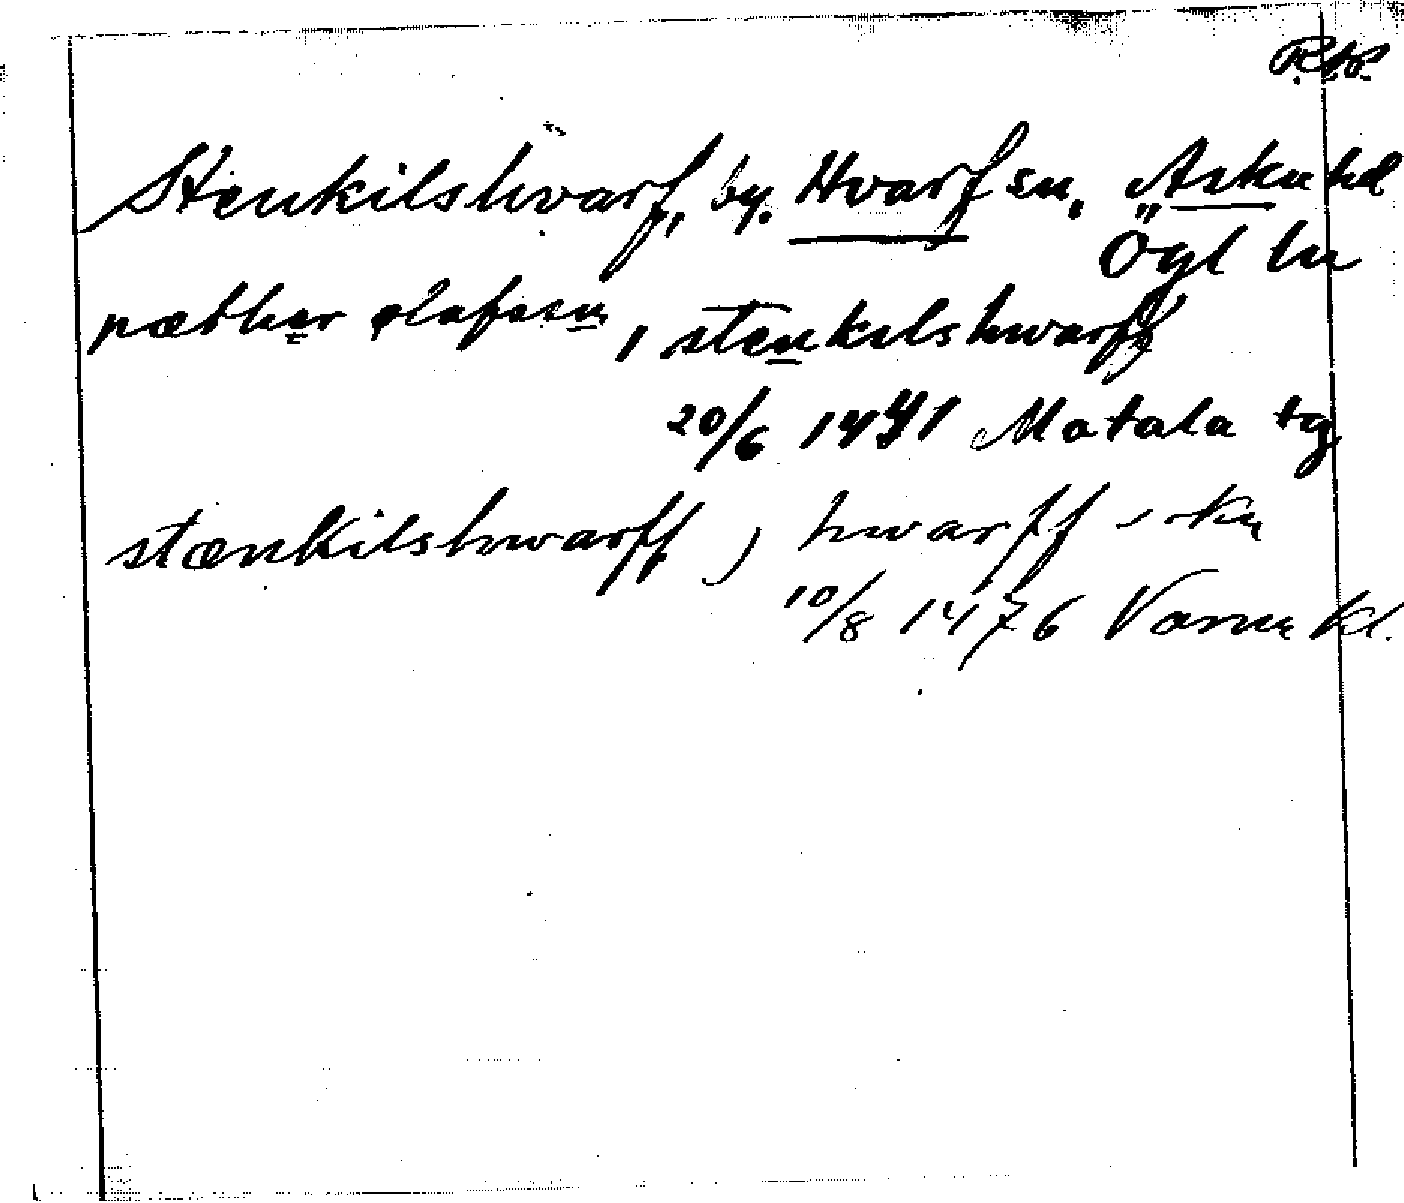 R.A.P.
Stenkilshvarf, by. Hvarf sn, Aska hd
Ögl ln
pæthar olafsson, i stenkilshwarff
20/6 1441 Motala tg
stænkilshwarff, hwarff
10/8 1476 Varnu kl.